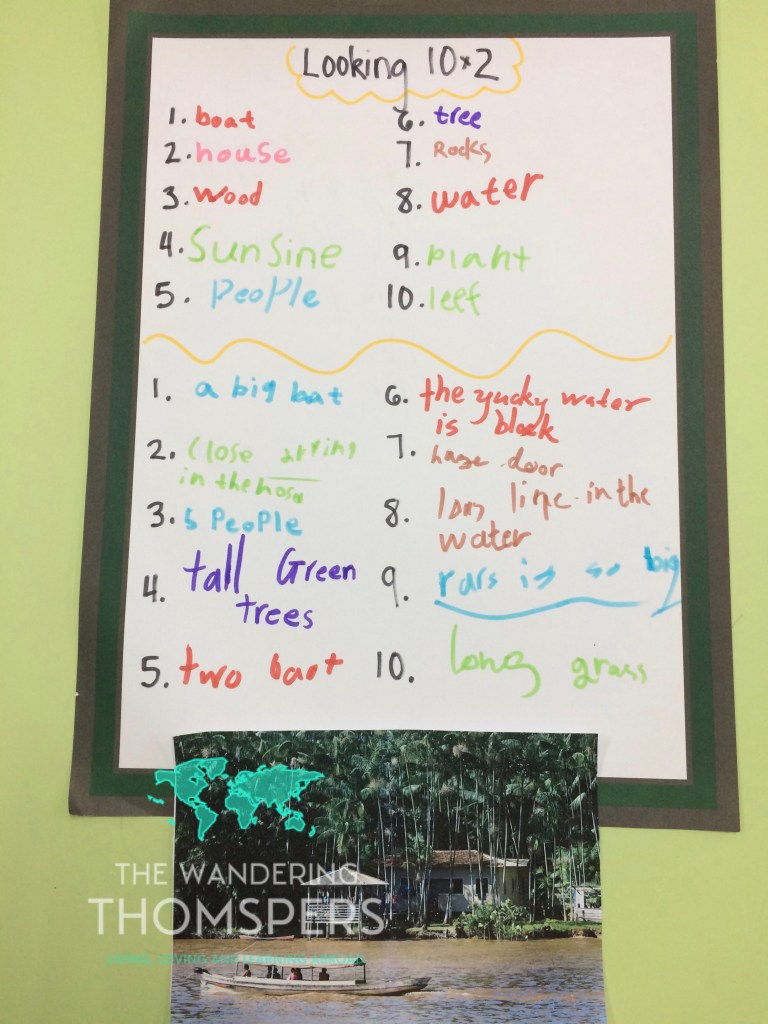 Looking 10x2
1. boat
2. house
3. wood
4. Sunsine
5. People
6. tree
7. Rocks
8. water
9. plant
10. leef
1. a big bat
2. Close
in the
3. 5 People
4. tall Green
trees
5. two
6. the yucky water
is
7. door
8. long line in the
water
9. is so big
10. long grass
THE WANDERING
THOMSPERS
AND LEARNING